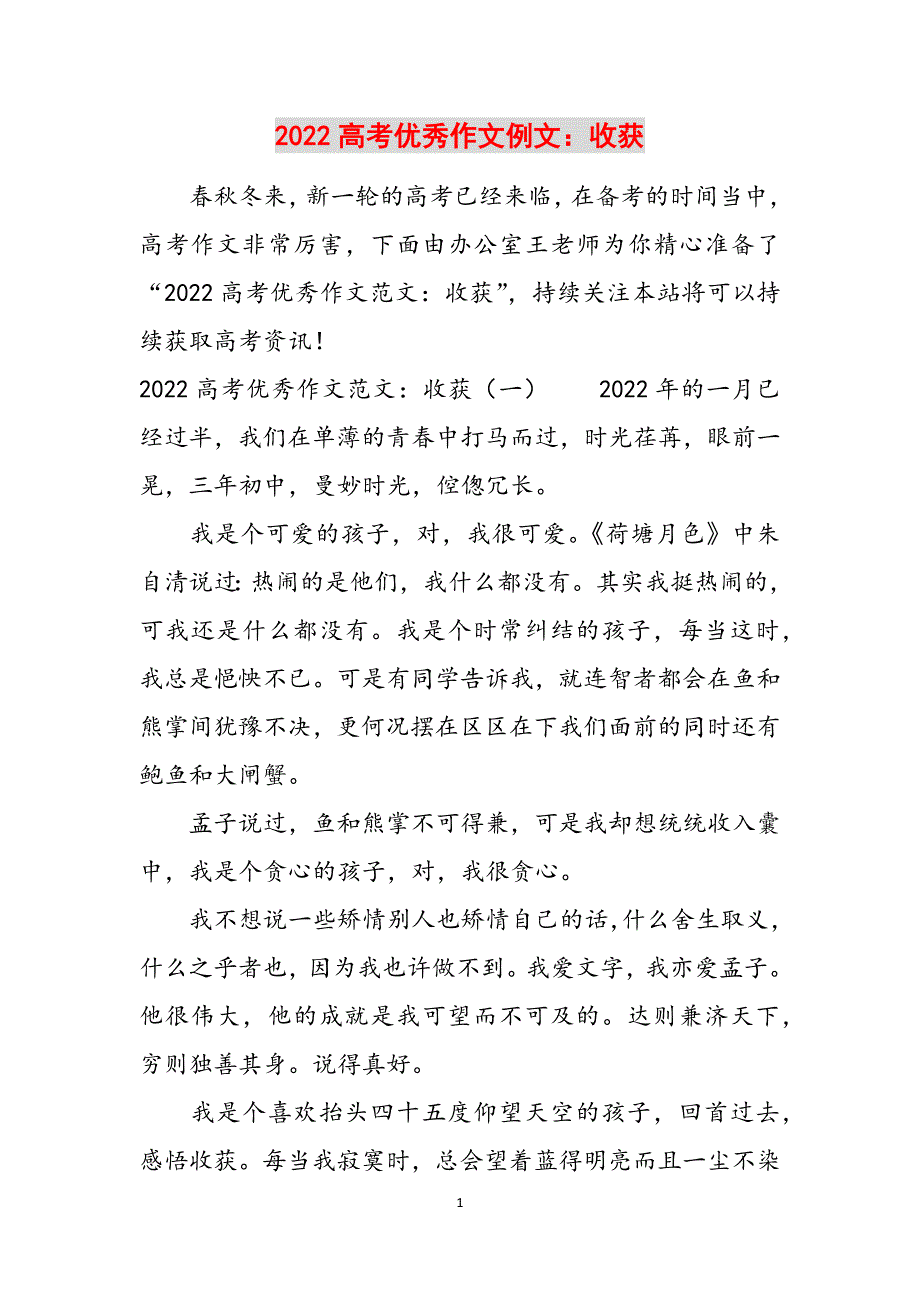 2022高考优秀作文例文：收获
春秋冬来，新一轮的高考已经来临，在备考的时间当中，
高考作文非常厉害，下面由办公室王老师为你精心准备了
“2022高考优秀作文范文：收获”，持续关注本站将可以持
续获取高考资讯！
2022高考优秀作文范文：收获（一） 2022年的一月已
经过半，我们在单薄的青春中打马而过，时光荏苒，眼前一
晃，三年初中，曼妙时光，倥偬冗长。
我是个可爱的孩子，对，我很可爱。《荷塘月色》中朱
自清说过：热闹的是他们，我什么都没有。其实我挺热闹的，
可我还是什么都没有。我是个时常纠结的孩子，每当这时，
我总是悒怏不已。可是有同学告诉我，就连智者都会在鱼和
熊掌间犹豫不决，更何况摆在区区在下我们面前的同时还有
鲍鱼和大闸蟹。
孟子说过，鱼和熊掌不可得兼，可是我却想统统收入囊
中，我是个贪心的孩子，对，我很贪心。
我不想说一些矫情别人也矫情自己的话，什么舍生取义，
什么之乎者也，因为我也许做不到。我爱文字，我亦爱孟子。
他很伟大，他的成就是我可望而不可及的。达则兼济天下，
穷则独善其身。说得真好。
我是个喜欢抬头四十五度仰望天空的孩子，回首过去，
感悟收获。每当我寂寞时，总会望着蓝得明亮而且一尘不染
1